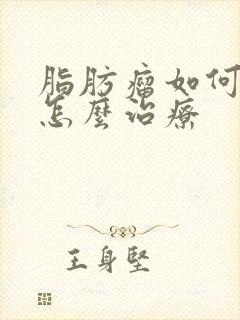 脂肪瘤如何
怎麼治療
王身堅